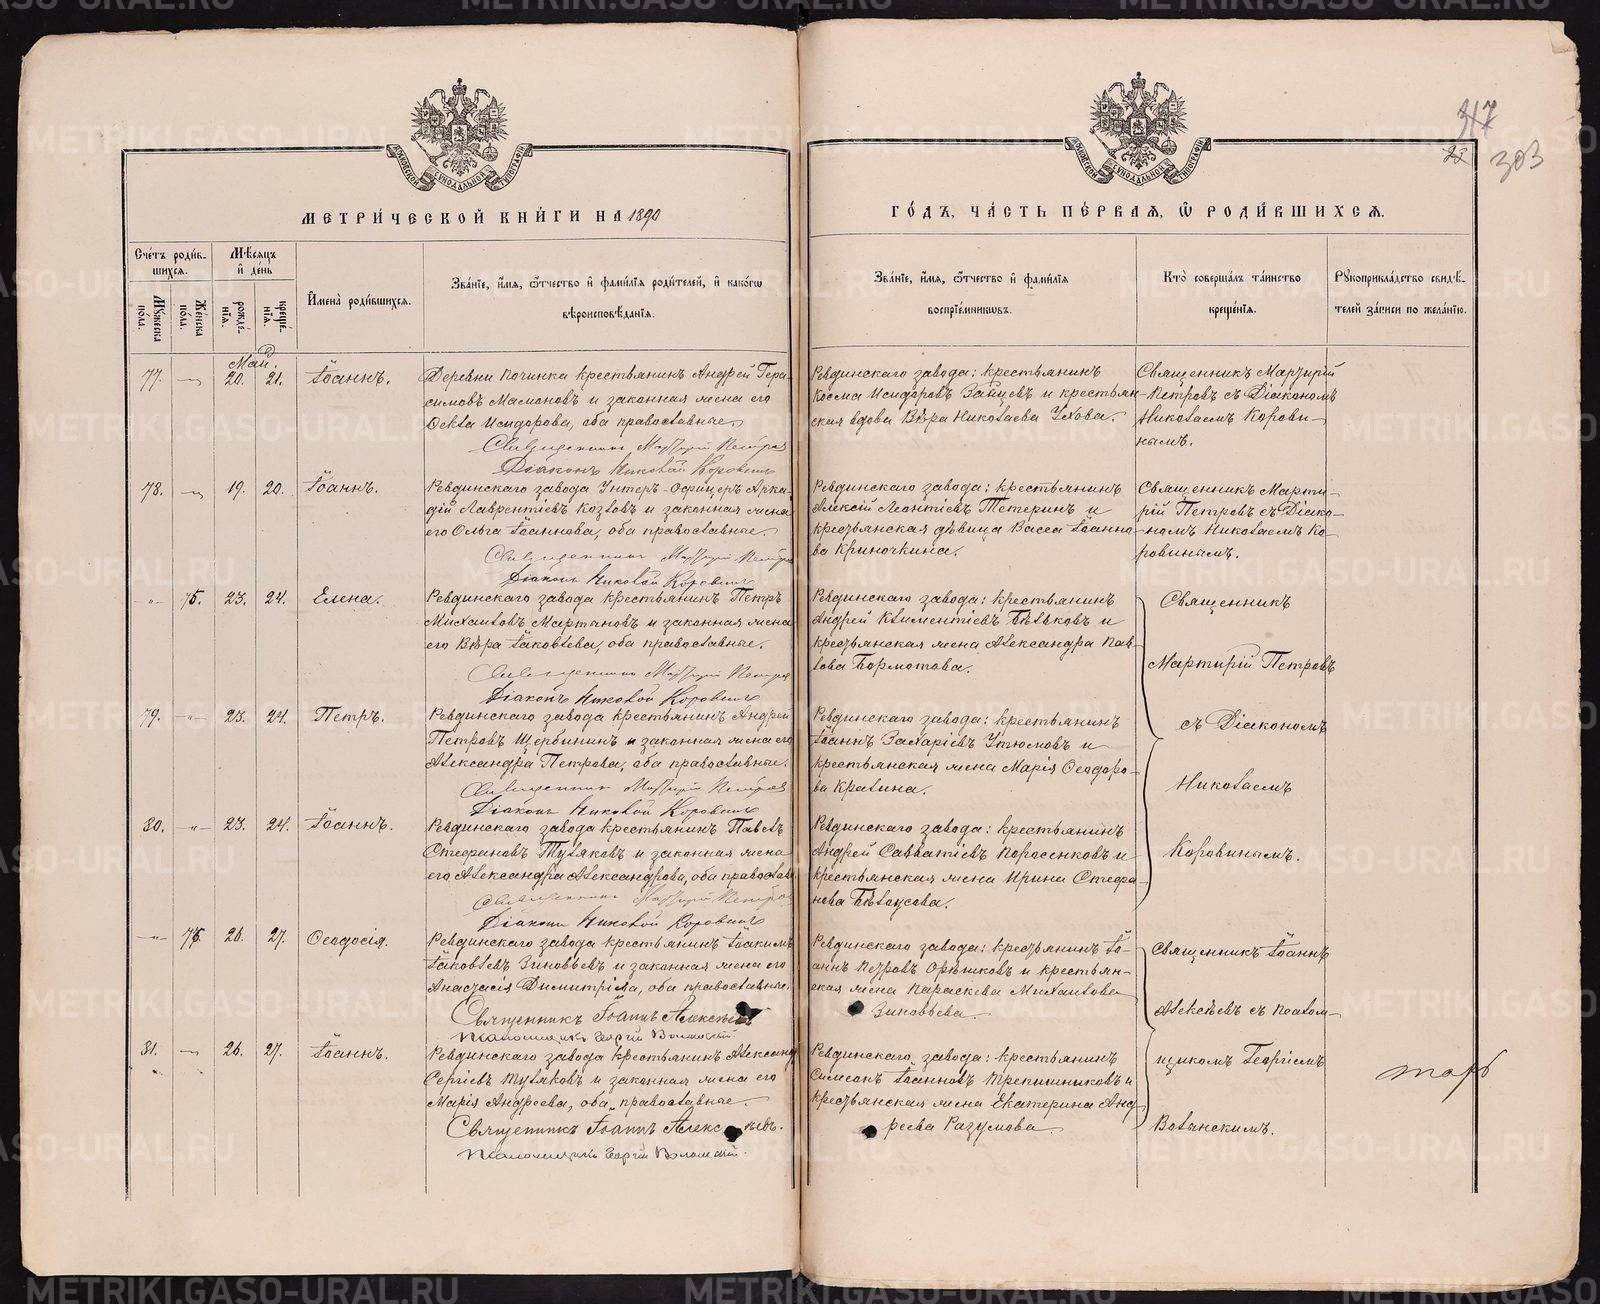 317
23 303
МОСКОВСКОЙ СѴНОДАЛЬНОЙ ТИПОГРАФІИ
МОСКОВСКОЙ СѴНОДАЛЬНОЙ ТИПОГРАФІИ
МЕТРИЧЕСКОЙ КНИГИ НА 1890
ГОДЪ, ЧАСТЬ ПЕРВАЯ, Ѡ РОДИВШИХСЯ.
Счетъ родившихся.
Мужеска пола.
Женска пола.
Мѣсяцъ и день
рожденія.
крещенія.
Имена родившихся.
Званіе, имя, отчество и фамилія родителей, и какогѡ
вѣроисповѣданія.
Званіе, имя, отчество и фамилія
воспріемниковъ.
Кто совершалъ таинство
крещенія.
Рукоприкладство свидѣ-
телей записи по желанію.
Май.
77. 20. 21. Іоаннъ.
Деревни Починка крестьянинъ Андрей Гера-
симовъ Мамоновъ и законная жена его
Ѳекла Исидорова, оба православные.
Священникъ Мартирій Петровъ
Діаконъ Николай Коровинъ
Ревдинскаго завода: крестьянинъ
Косма Исидоровъ Зайцевъ и крестьян-
ская вдова Вѣра Николаева Ухова.
Священникъ Мартирій
Петровъ съ Діакономъ
Николаемъ Корови-
нымъ.
78. 19. 20. Іоаннъ.
Ревдинскаго завода Унтеръ-Офицеръ Арка-
дій Лаврентіевъ Козловъ и законная жена
его Ольга Іоаннова, оба православные.
Священникъ Мартирій Петровъ
Діаконъ Николай Коровинъ
Ревдинскаго завода: крестьянинъ
Алексій Леонтіевъ Тетеринъ и
крестьянская дѣвица Васса Іоанно-
ва Криночкина.
Священникъ Марти-
рій Петровъ съ Діако-
номъ Николаемъ Ко-
ровинымъ.
-"- 75. 23. 24. Елена.
Ревдинскаго завода крестьянинъ Петръ
Михаиловъ Мартяновъ и законная жена
его Вѣра Іаковлева, оба православные.
Священникъ Мартирій Петровъ
Діаконъ Николай Коровинъ
Ревдинскаго завода: крестьянинъ
Андрей Климентіевъ Бѣльковъ и
крестьянская жена Александра Пав-
лова Бормотова.
Священникъ
Мартирій Петровъ
съ Діакономъ
Николаемъ
Коровинымъ.
79. -"- 23. 24. Петръ.
Ревдинскаго завода крестьянинъ Андрей
Петровъ Щербининъ и законная жена его
Александра Петрова, оба православные.
Священникъ Мартирій Петровъ
Діаконъ Николай Коровинъ
Ревдинскаго завода: крестьянинъ
Іоаннъ Захаріевъ Утюмовъ и
крестьянская жена Марія Ѳеодоро-
ва Кралина.
80. -"- 23. 24. Іоаннъ.
Ревдинскаго завода крестьянинъ Павелъ
Стефановъ Туляковъ и законная жена
его Александра Александрова, оба православ
Священникъ Мартирій Петровъ
Діаконъ Николай Коровинъ
Ревдинскаго завода: крестьянинъ
Андрей Савватіевъ Поросенковъ и
крестьянская жена Ирина Стефа-
нова Бѣлоусова.
-"- 76. 26. 27. Ѳеодосія.
Ревдинскаго завода крестьянинъ Іоакимъ
Іаковлевъ Зиновьевъ и законная жена его
Анастасія Димитріева, оба православные.
Священникъ Іоаннъ Алексѣевъ
Псаломщикъ Георгій Волынскій
Ревдинскаго завода: крестьянинъ Іо-
аннъ Петровъ Орѣшковъ и крестьян-
ская жена Параскева Михаилова
Зиновьева.
Священникъ Іоаннъ
Алексѣевъ съ Псалом-
щикомъ Георгіемъ
Волынскимъ.
81. 26. 27. Іоаннъ.
Ревдинскаго завода крестьянинъ Александ
Сергіевъ Туляковъ и законная жена его
Марія Андреева, оба православные.
Священникъ Іоаннъ Алексѣевъ.
Псаломщикъ Георгій Волынскій.
Ревдинскаго завода: крестьянинъ
Симеонъ Іоанновъ Трепишниковъ и
крестьянская жена Екатерина Анд-
реева Разумова.